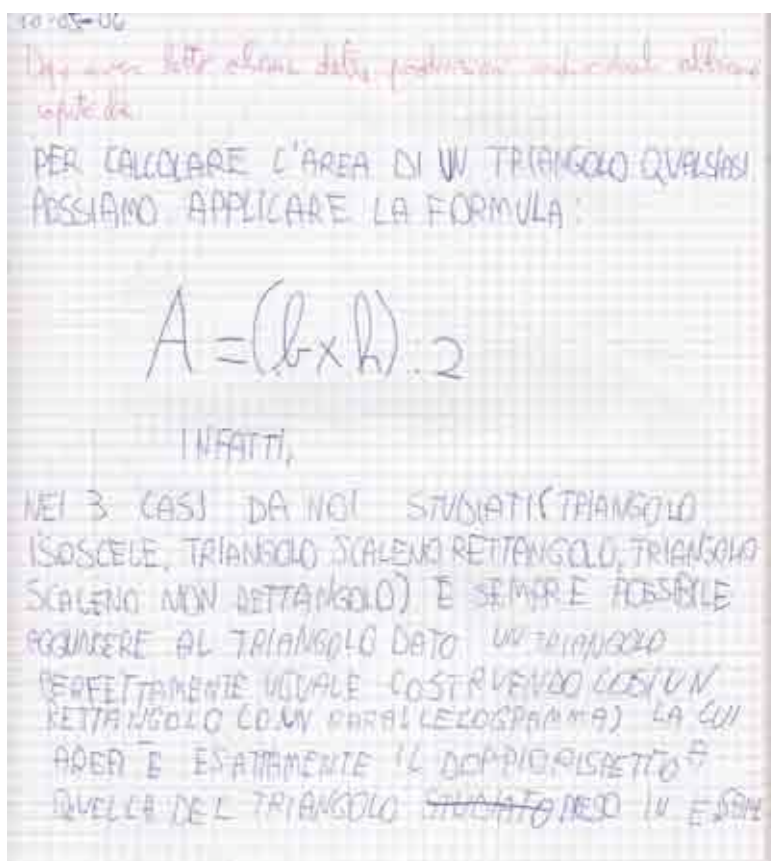 10-05-06
Dopo aver letto alcune delle produzioni individuali abbiamo
capito che
PER CALCOLARE L'AREA DI UN TRIANGOLO QUALSIASI
POSSIAMO APPLICARE LA FORMULA:
A = (b x h) : 2
INFATTI,
NEI 3 CASI DA NOI STUDIATI (TRIANGOLO
ISOSCELE, TRIANGOLO SCALENO RETTANGOLO, TRIANGOLO
SCALENO NON RETTANGOLO) È SEMPRE POSSIBILE
AGGIUNGERE AL TRIANGOLO DATO UN TRIANGOLO
PERFETTAMENTE UGUALE COSTRUENDO COSÌ UN
RETTANGOLO (O UN PARALLELOGRAMMA) LA CUI
AREA È ESATTAMENTE IL DOPPIO RISPETTO A
QUELLA DEL TRIANGOLO STUDIATO PRESO IN ESAM